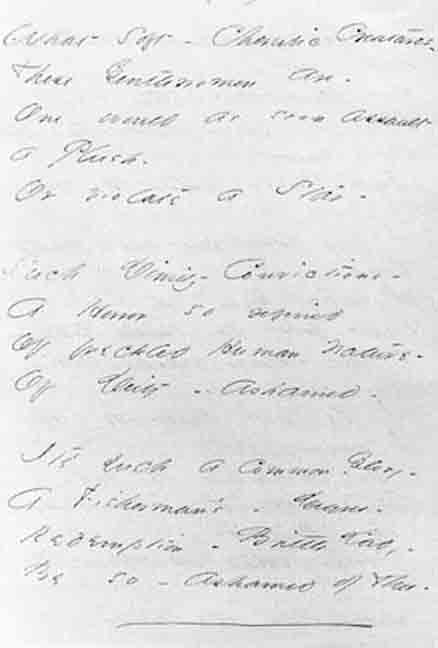 What Soft - Cherubic Creatures -
These Gentlewomen are -
One would as soon assault
a Plush -
Or violate a Star -
Such Dimity Convictions -
A Horror so refined
Of freckled Human Nature -
Of Deity - Ashamed -
It's such a common Glory -
A Fisherman's - Degree -
Redemption - Brittle Lady -
Be so - ashamed of Thee -